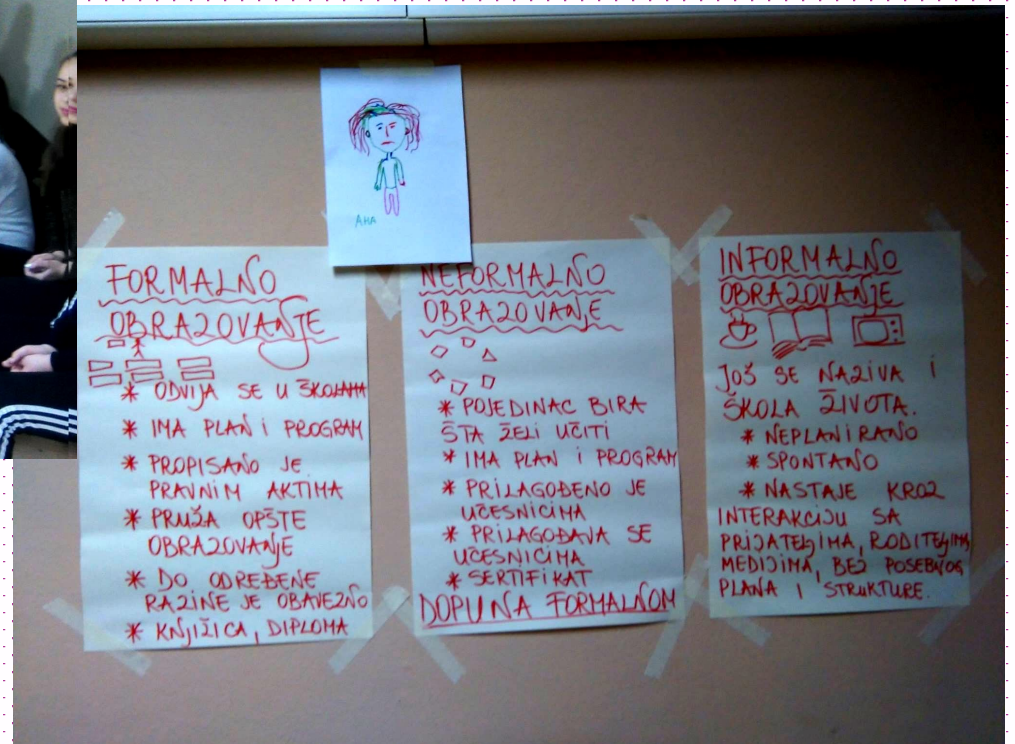 Ана
FORMALNO
OBRAZOVANJE
* ODVIJA SE U ŠKOLAMA
* IMA PLAN i PROGRAM
* PROPISANO JE
PRAVNIM AKTIMA
* PRUŽA OPŠTE
OBRAZOVANJE
* DO ODREĐENE
RAZINE JE OBAVEZNO
* KNJIŽICA, DIPLOMA
NEFORMALNO
OBRAZOVANJE
* POJEDINAC BIRA
ŠTA ŽELI UČITI
* IMA PLAN i PROGRAM
* PRILAGOĐENO JE
UČESNICIMA
* PRILAGOĐAVA SE
UČESNICIMA
* SERTIFIKAT
DOPUNA FORMALNOM
INFORMALNO
OBRAZOVANJE
JOŠ SE NAZIVA i
ŠKOLA ŽIVOTA.
* NEPLANIRANO
* SPONTANO
* NASTAJE KROZ
INTERAKCIJU SA
PRIJATELJIMA, RODITELJIMA,
MEDIJIMA, BEZ POSEBNOG
PLANA I STRUKTURE.